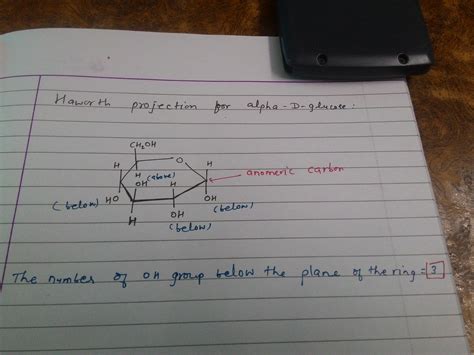 Haworth projection for alpha-D-glucose:
CH₂OH
H O H
H anomeric carbon
OH (above) H
(below) HO OH
H OH (below)
(below)
The number of OH group below the plane of the ring = 3